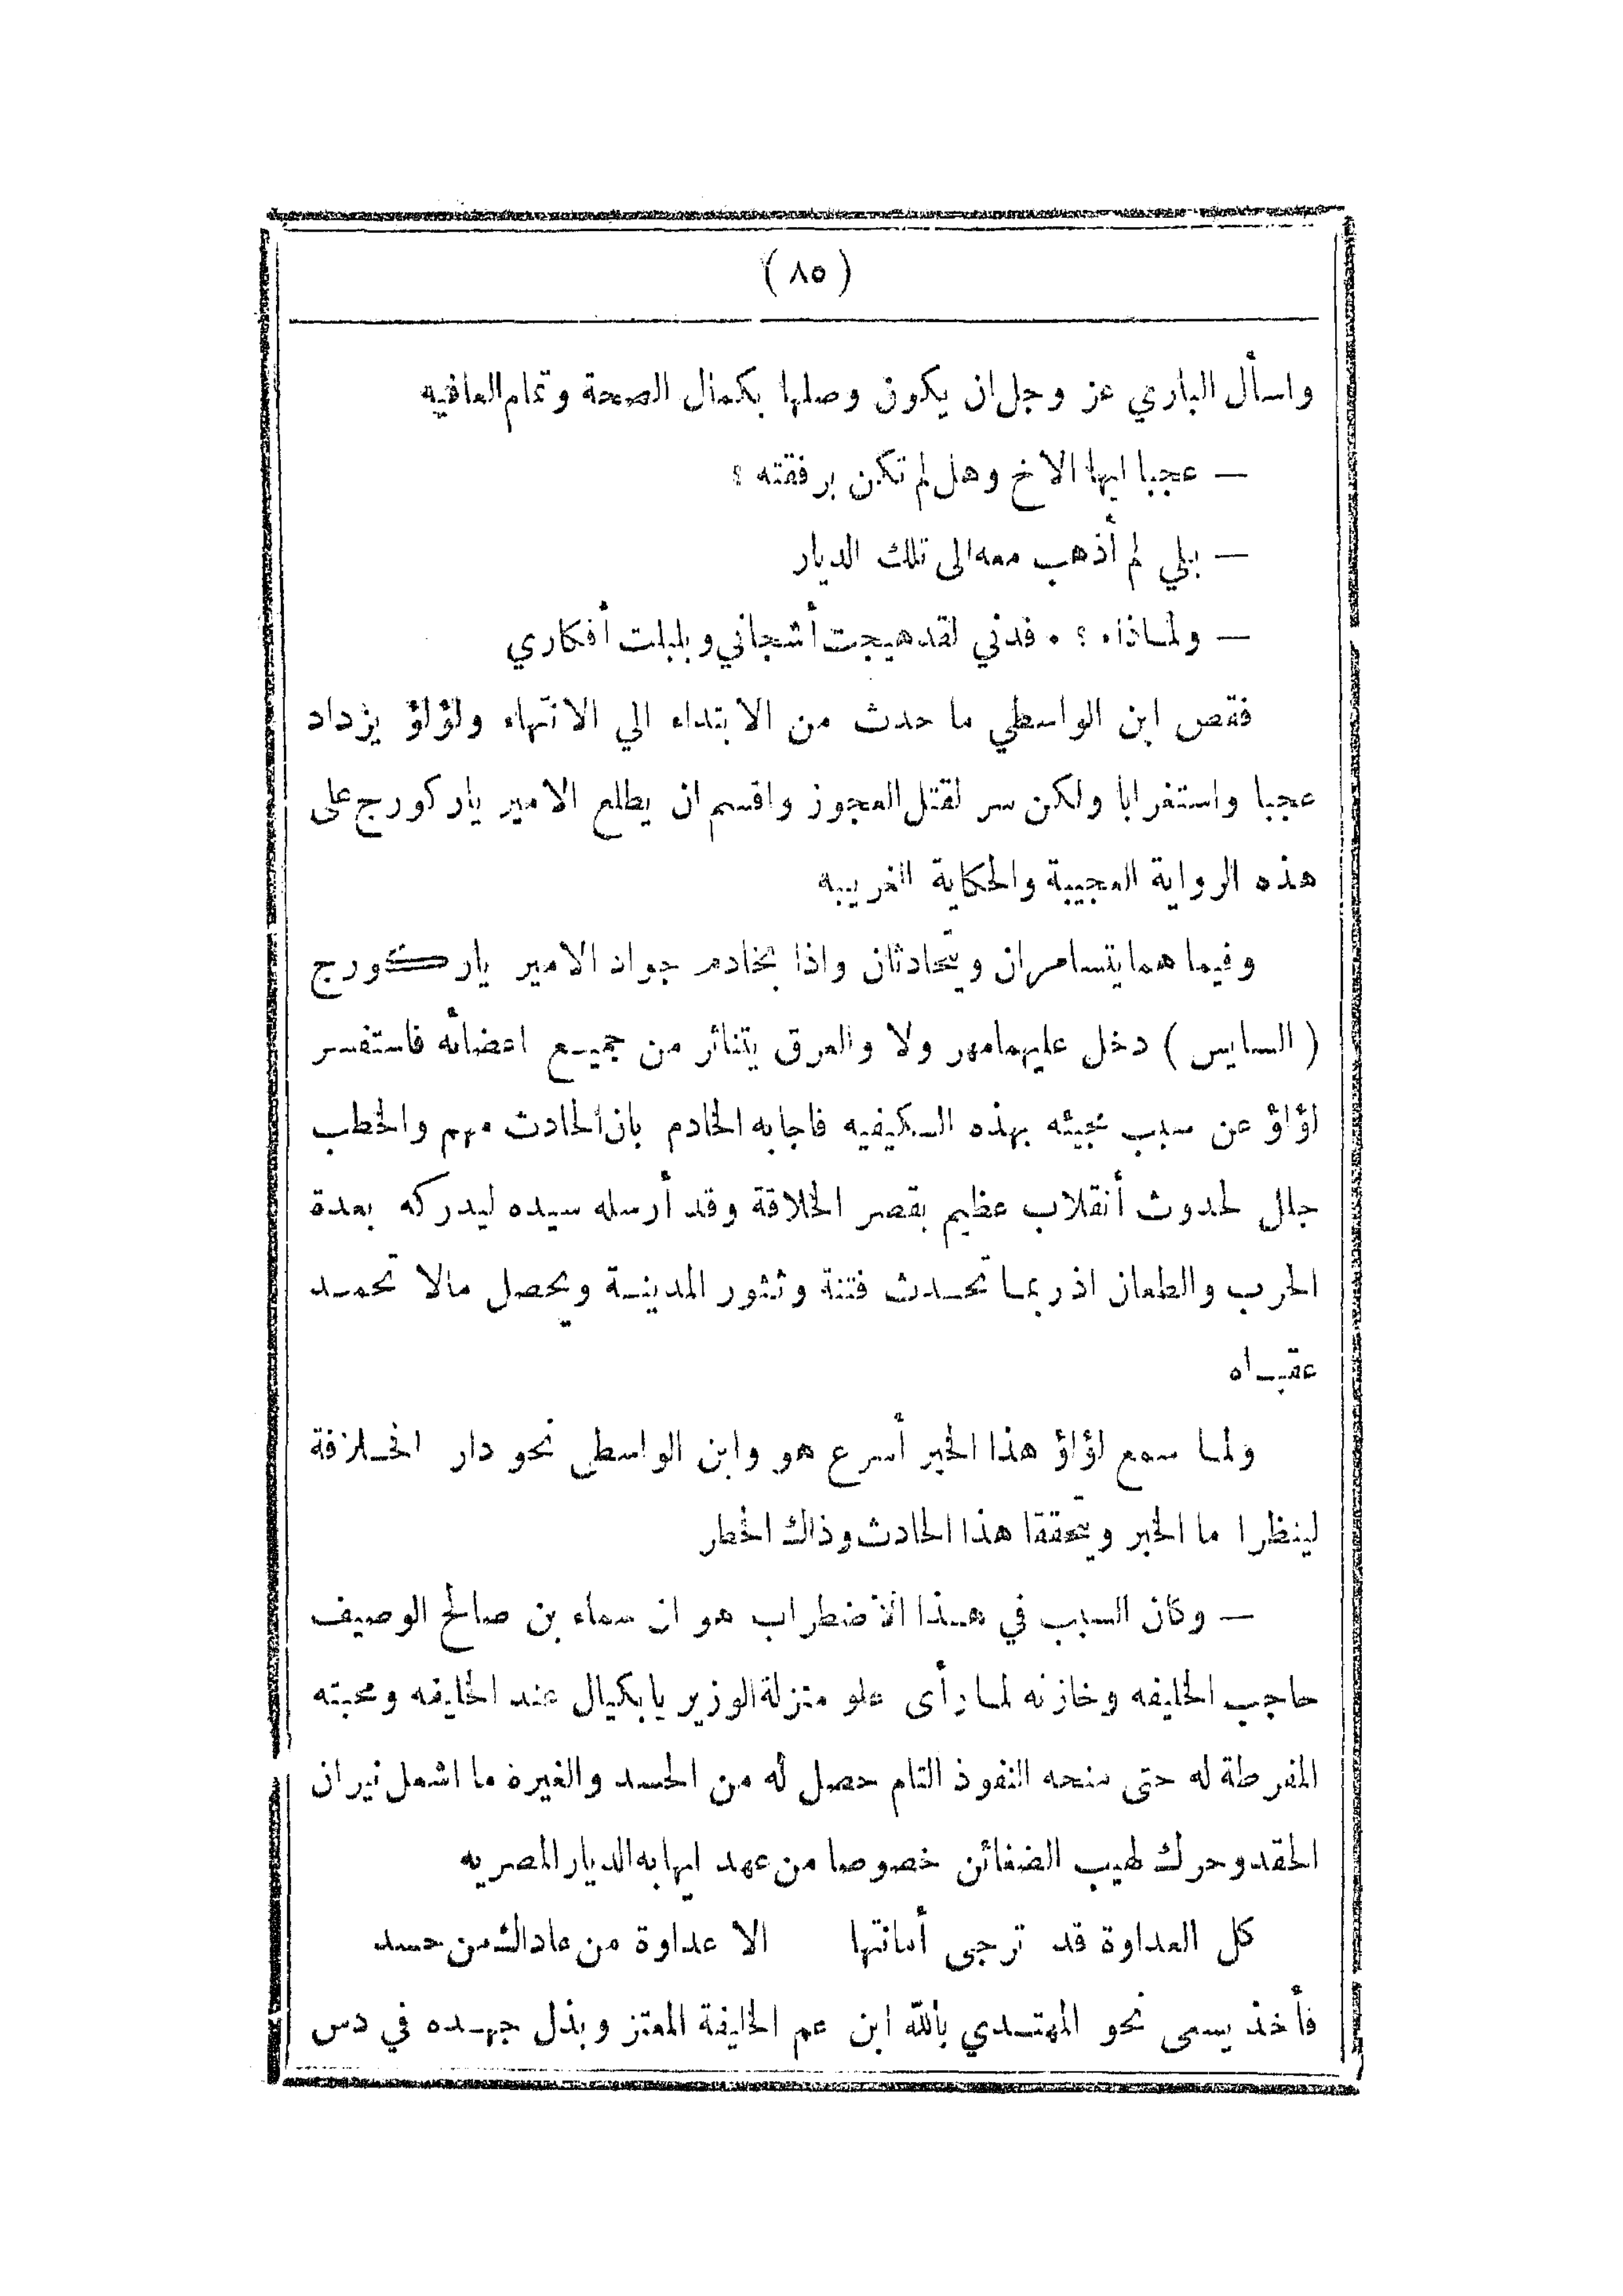 ( ٨٥ )
واسأل الباري عز وجل ان يكون وصلها بكمال الصحة وتمام العافيه
— عجبا ايها الاخ وهل لم تكن برفقته ؟
— بلي لم أذهب معه الى تلك الديار
— ولماذاه ؟ ٠ فدني لقد هيجت أشجاني وبلبلت أفكاري
فقص ابن الواسطي ما حدث من الابتداء الي الانتهاء ولؤلؤ يزداد
عجبا واستغرابا ولكن سر لقتل العجوز واقسم ان يطلع الامير ياركورج على
هذه الرواية العجيبة والحكاية الغريبه
وفيما هما يتسامران ويتحادثان واذا بخادم جواد الامير ياركورج
( السايس ) دخل عليهما مهرولا والعرق يتناثر من جميع اعضائه فاستفسر
لؤلؤ عن سبب مجيئه بهذه الكيفيه فاجابه الخادم بان الحادث مهم والخطب
جلل لحدوث أنقلاب عظيم بقصر الخلافة وقد أرسله سيده ليدركه بعدة
الحرب والطعان اذ ربما تحدث فتنة وتثور المدينة ويحصل مالا تحمد
عقباه
ولما سمع لؤلؤ هذا الخبر أسرع هو وابن الواسطي نحو دار الخلافة
لينظرا ما الخبر ويتحققا هذا الحادث وذاك الخطر
— وكان السبب في هذا الاضطراب هو ان سماء بن صالح الوصيف
حاجب الخليفه وخازنه لما رأى علو منزلة الوزير يابكيال عند الخليفه ومحبته
المفرطة له حتى منحه النفوذ التام حصل له من الحسد والغيرة ما اشعل نيران
الحقد وحرك لهيب الضغائن خصوصا من عهد ايهابه الديار المصريه
كل العداوة قد ترجى أماتتها الا عداوة من عاداك من حسد
فأخذ يسعى نحو المهتدي بالله ابن عم الخليفة المعتز وبذل جهده في دس